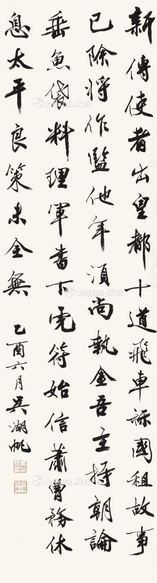 新傳使者出皇都十道飛車國租故事
已除將作監他年須尚執金吾主持朝論
垂魚袋料理軍書下虎符始信蕭曹務休
息太平良策未全無
乙酉六月吳湖帆